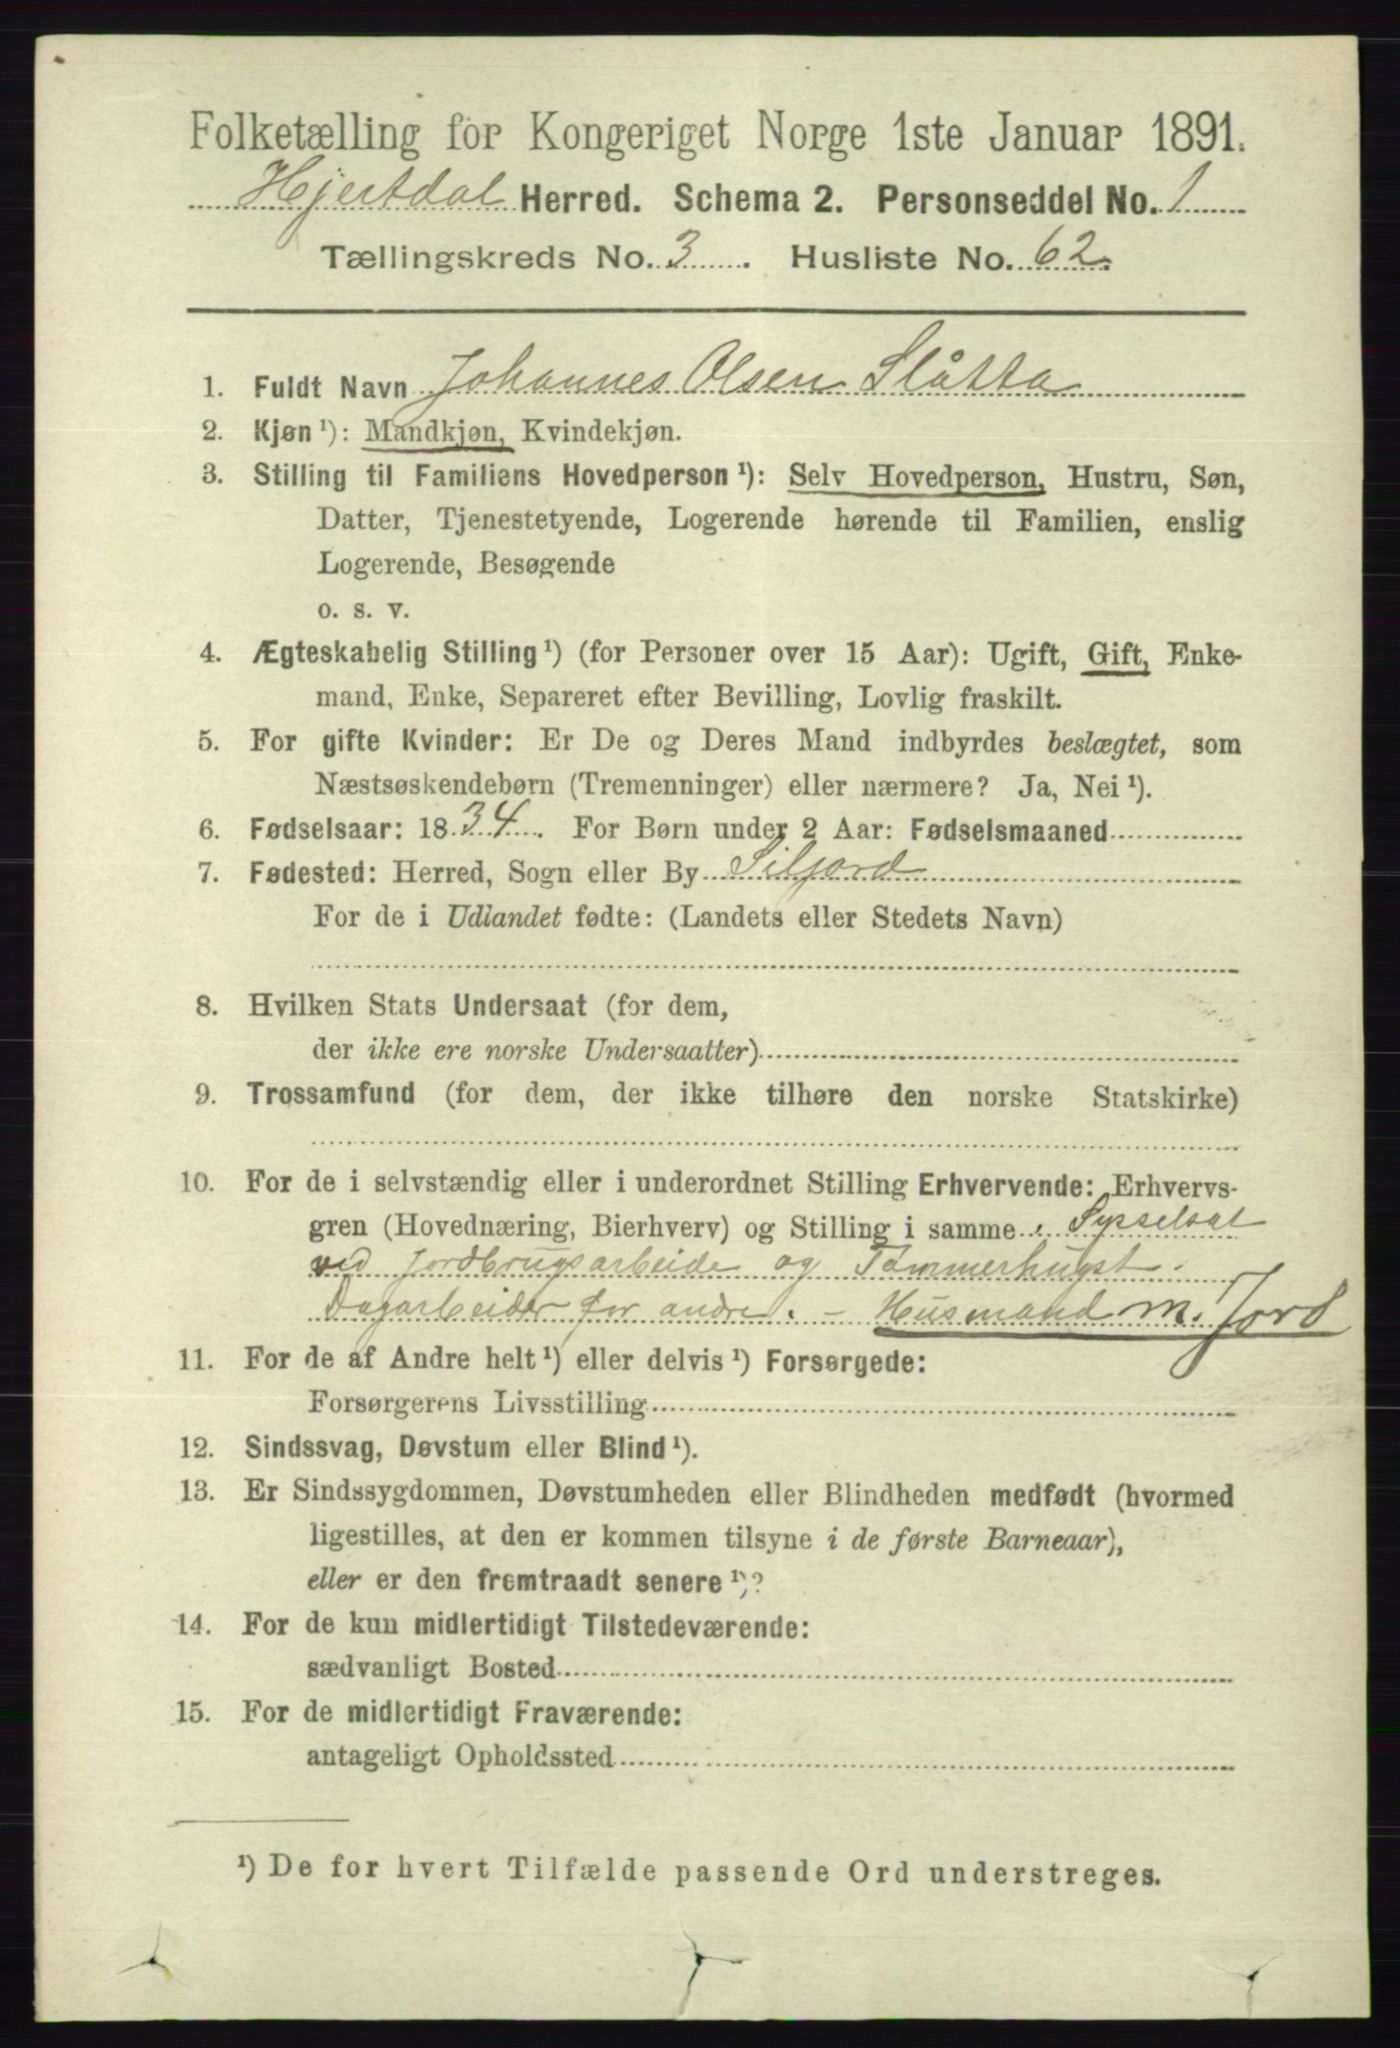 Folketælling for Kongeriget Norge 1ste Januar 1891.
Hjertdal Herred. Schema 2. Personseddel No. 1
Tællingskreds No. 3. Husliste No. 62.
1. Fuldt Navn Johannes Olsen Slåtta
2. Kjøn ¹): Mandkjøn, Kvindekjøn.
3. Stilling til Familiens Hovedperson ¹): Selv Hovedperson, Hustru, Søn,
Datter, Tjenestetyende, Logerende hørende til Familien, enslig
Logerende, Besøgende
o. s. v.
4. Ægteskabelig Stilling ¹) (for Personer over 15 Aar): Ugift, Gift, Enke-
mand, Enke, Separeret efter Bevilling, Lovlig fraskilt.
5. For gifte Kvinder: Er De og Deres Mand indbyrdes beslægtet, som
Næstsøskendebørn (Tremenninger) eller nærmere? Ja, Nei ¹).
6. Fødselsaar: 1834. For Børn under 2 Aar: Fødselsmaaned
7. Fødested: Herred, Sogn eller By Siljord
For de i Udlandet fødte: (Landets eller Stedets Navn)
8. Hvilken Stats Undersaat (for dem,
der ikke ere norske Undersaatter)
9. Trossamfund (for dem, der ikke tilhøre den norske Statskirke)
10. For de i selvstændig eller i underordnet Stilling Erhvervende: Erhvervs-
gren (Hovednæring, Bierhverv) og Stilling i samme. Sysselsat
ved Jordbrugsarbeide og Tømmerhugst.
Dagarbeider for andre. – Husmand m. Jord
11. For de af Andre helt ¹) eller delvis ¹) Forsørgede:
Forsørgerens Livsstilling
12. Sindssvag, Døvstum eller Blind ¹).
13. Er Sindssygdommen, Døvstumheden eller Blindheden medfødt (hvormed
ligestilles, at den er kommen tilsyne i de første Barneaar),
eller er den fremtraadt senere ¹)?
14. For de kun midlertidigt Tilstedeværende:
sædvanligt Bosted
15. For de midlertidigt Fraværende:
antageligt Opholdssted
¹) De for hvert Tilfælde passende Ord understreges.